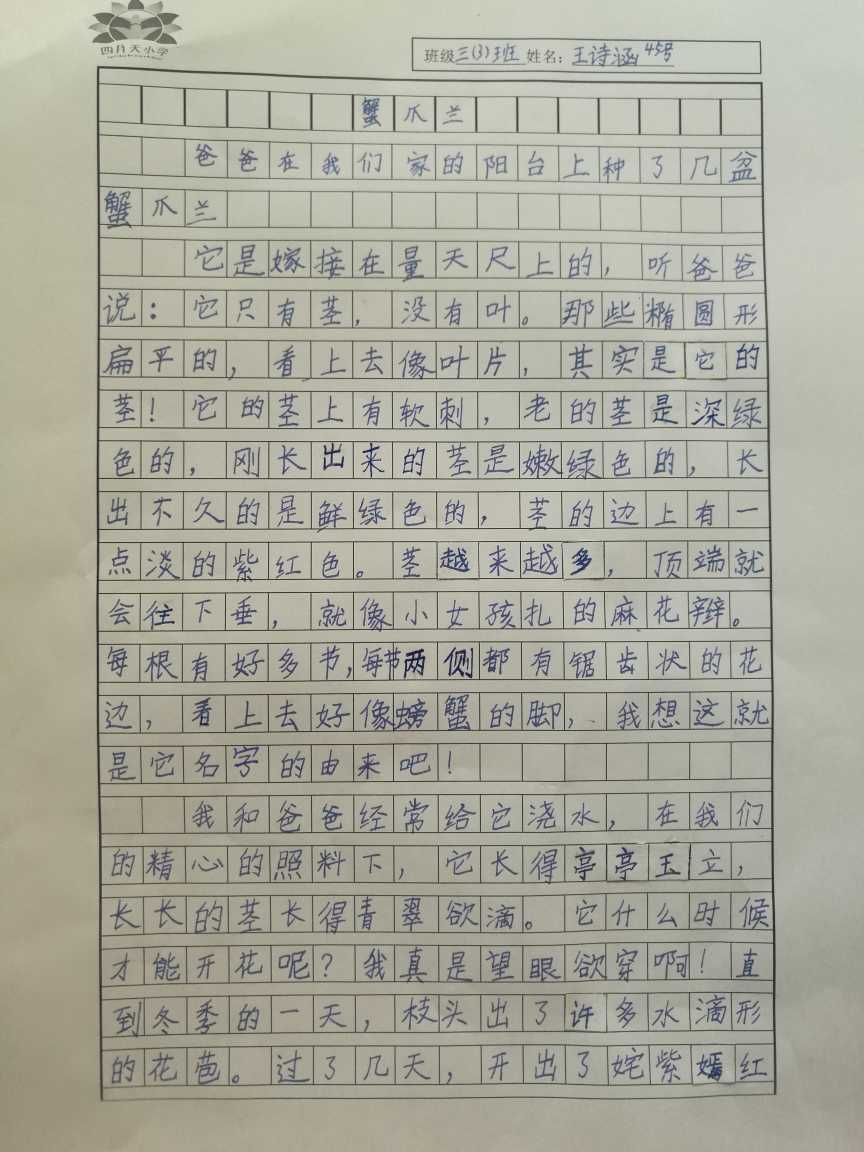 四月天小学
班级三(3)班 姓名：王诗涵 45号
蟹爪兰
爸爸在我们家的阳台上种了几盆
蟹爪兰
它是嫁接在量天尺上的，听爸爸
说：它只有茎，没有叶。那些椭圆形
扁平的，看上去像叶片，其实是它的
茎！它的茎上有软刺，老的茎是深绿
色的，刚长出来的茎是嫩绿色的，长
出不久的是鲜绿色的，茎的边上有一
点淡的紫红色。茎越来越多，顶端就
会往下垂，就像小女孩扎的麻花辫。
每根有好多节，每节两侧都有锯齿状的花
边，看上去好像螃蟹的脚，我想这就
是它名字的由来吧！
我和爸爸经常给它浇水，在我们
的精心的照料下，它长得亭亭玉立，
长长的茎长得青翠欲滴。它什么时候
才能开花呢？我真是望眼欲穿啊！直
到冬季的一天，枝头出了许多水滴形
的花苞。过了几天，开出了姹紫嫣红